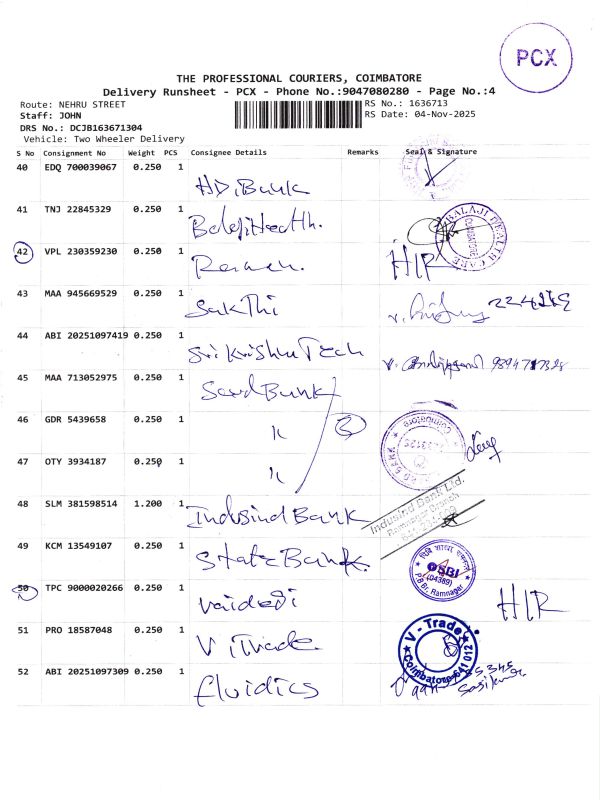 PCX
THE PROFESSIONAL COURIERS, COIMBATORE
Delivery Runsheet - PCX - Phone No.:9047080280 - Page No.:4
Route: NEHRU STREET
RS No.: 1636713
Staff: JOHN
RS Date: 04-Nov-2025
DRS No.: DCJB163671304
Vehicle: Two Wheeler Delivery
S No Consignment No Weight PCS Consignee Details Remarks Seal & Signature
40 EDQ 700039067 0.250 1
41 TNJ 22845329 0.250 1 BALAJI HEALTH CARE
42 VPL 230359230 0.250 1 HIR
43 MAA 945669529 0.250 1 SakThi
44 ABI 20251097419 0.250 1 Sri Krishna Tech
45 MAA 713052975 0.250 1 Bank
46 GDR 5439658 0.250 1 " 3 Coimbatore
47 OTY 3934187 0.250 1 "
48 SLM 381598514 1.200 1 Indusind Bank Indusind Bank Ltd. Ramnagar Branch
49 KCM 13549107 0.250 1 State Bank SBI (04389) P.B Br. Ramnagar
50 TPC 9000020266 0.250 1 HIR
51 PRO 18587048 0.250 1 V iTrade V - Trade Coimbatore-641 012
52 ABI 20251097309 0.250 1 fluidics